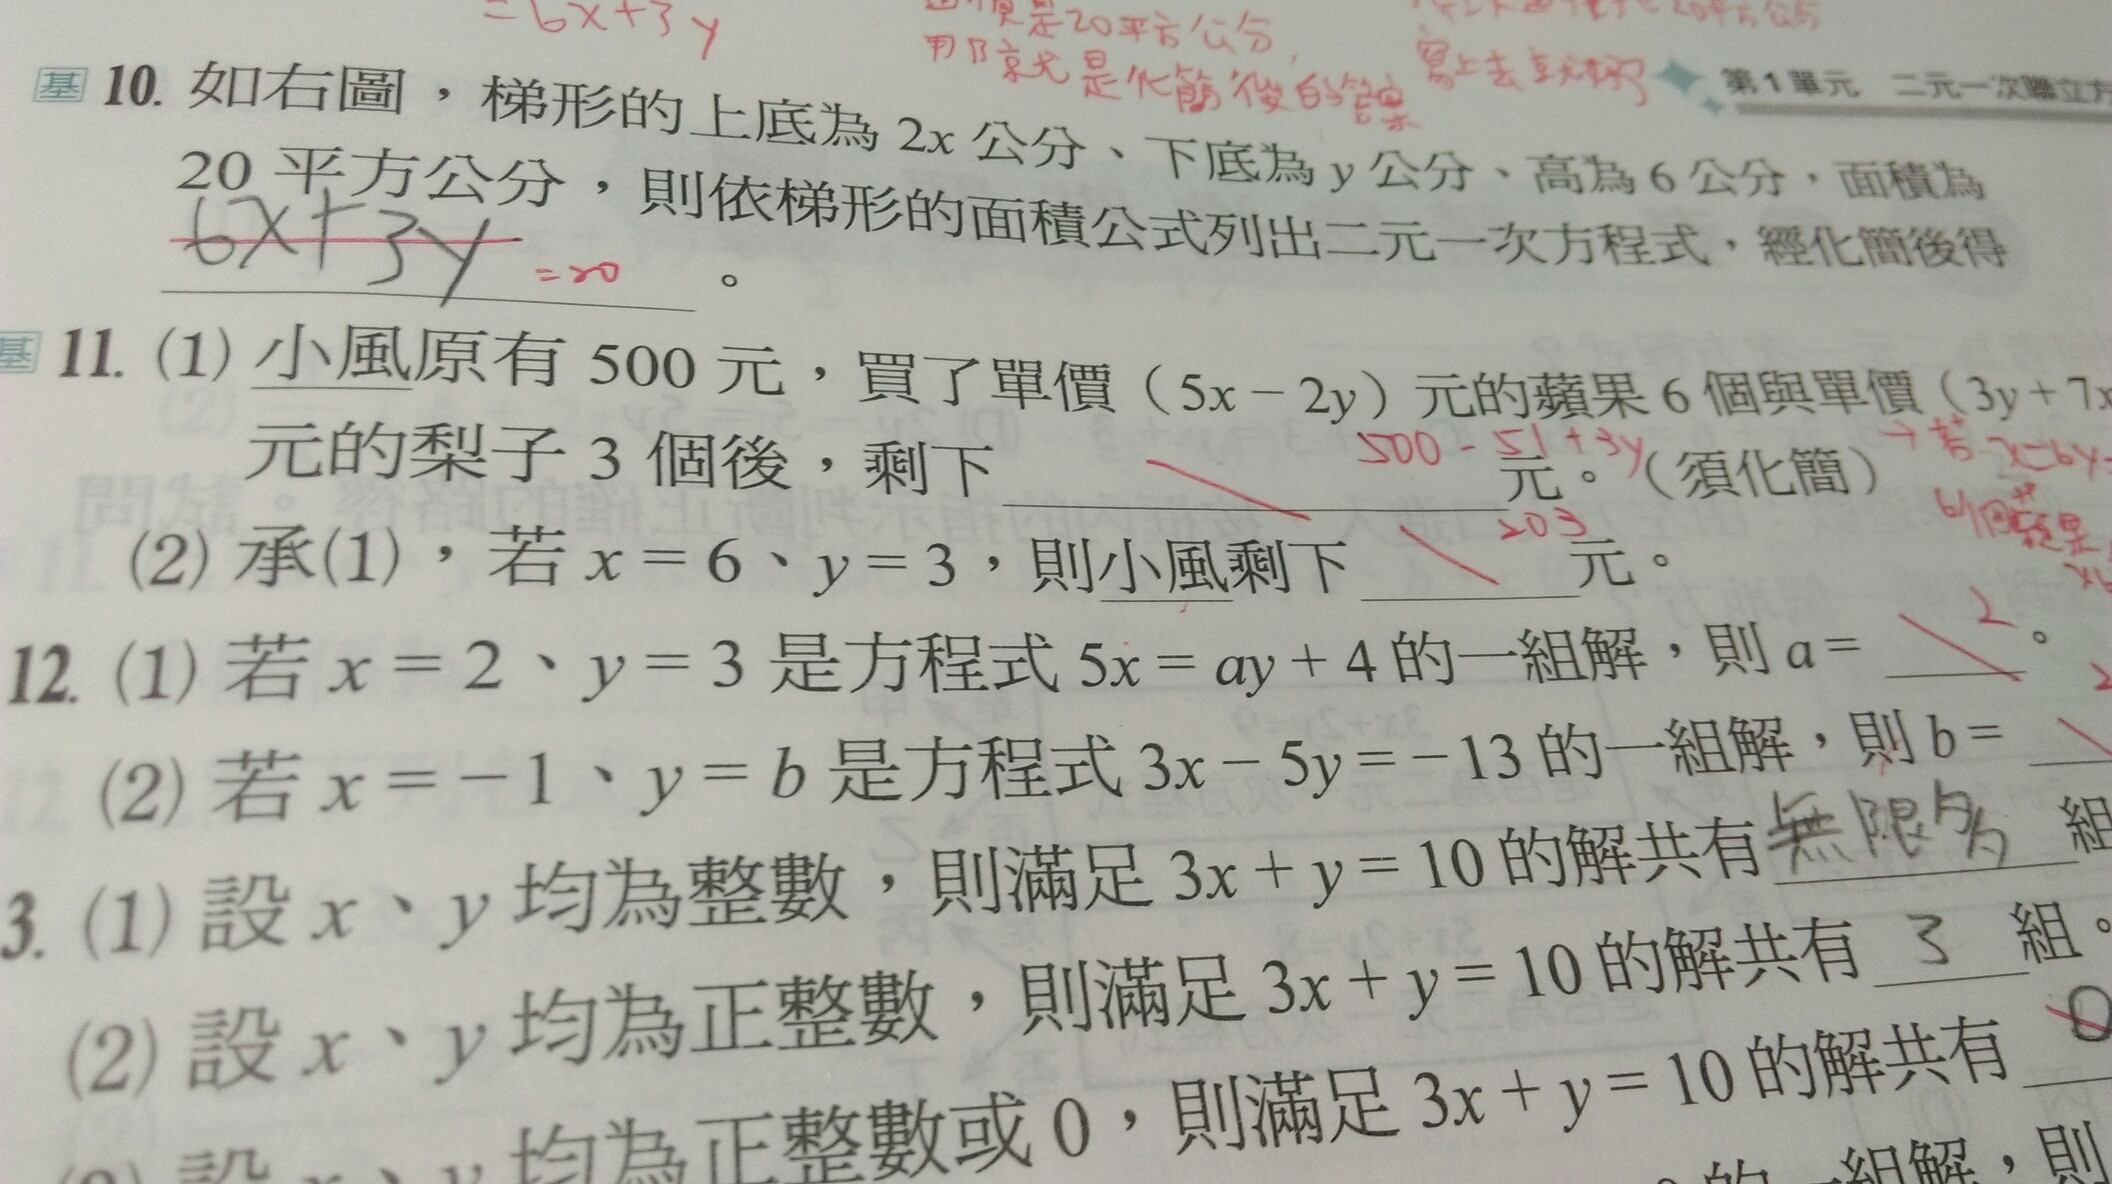 =6x+3y
是20平方公分,
那就是化簡後的答案
第1單元 二元一次聯立方
基 10. 如右圖，梯形的上底為 2x 公分、下底為 y 公分、高為 6 公分，面積為
20 平方公分，則依梯形的面積公式列出二元一次方程式，經化簡後得
6x+3y =20 。
基 11. (1) 小風原有 500 元，買了單價（5x－2y）元的蘋果 6 個與單價（3y＋7x
500-51+3y →若x=6y=
元的梨子 3 個後，剩下 元。（須化簡）
6個蘋果
203
(2) 承(1)，若 x＝6、y＝3，則小風剩下 元。
2
12. (1) 若 x＝2、y＝3 是方程式 5x＝ay＋4 的一組解，則 a＝ 。
2
(2) 若 x＝－1、y＝b 是方程式 3x－5y＝－13 的一組解，則 b＝
3. (1) 設 x、y 均為整數，則滿足 3x＋y＝10 的解共有無限多組
(2) 設 x、y 均為正整數，則滿足 3x＋y＝10 的解共有 3 組。
設 x、y 均為正整數或 0，則滿足 3x＋y＝10 的解共有 0
的一組解，則